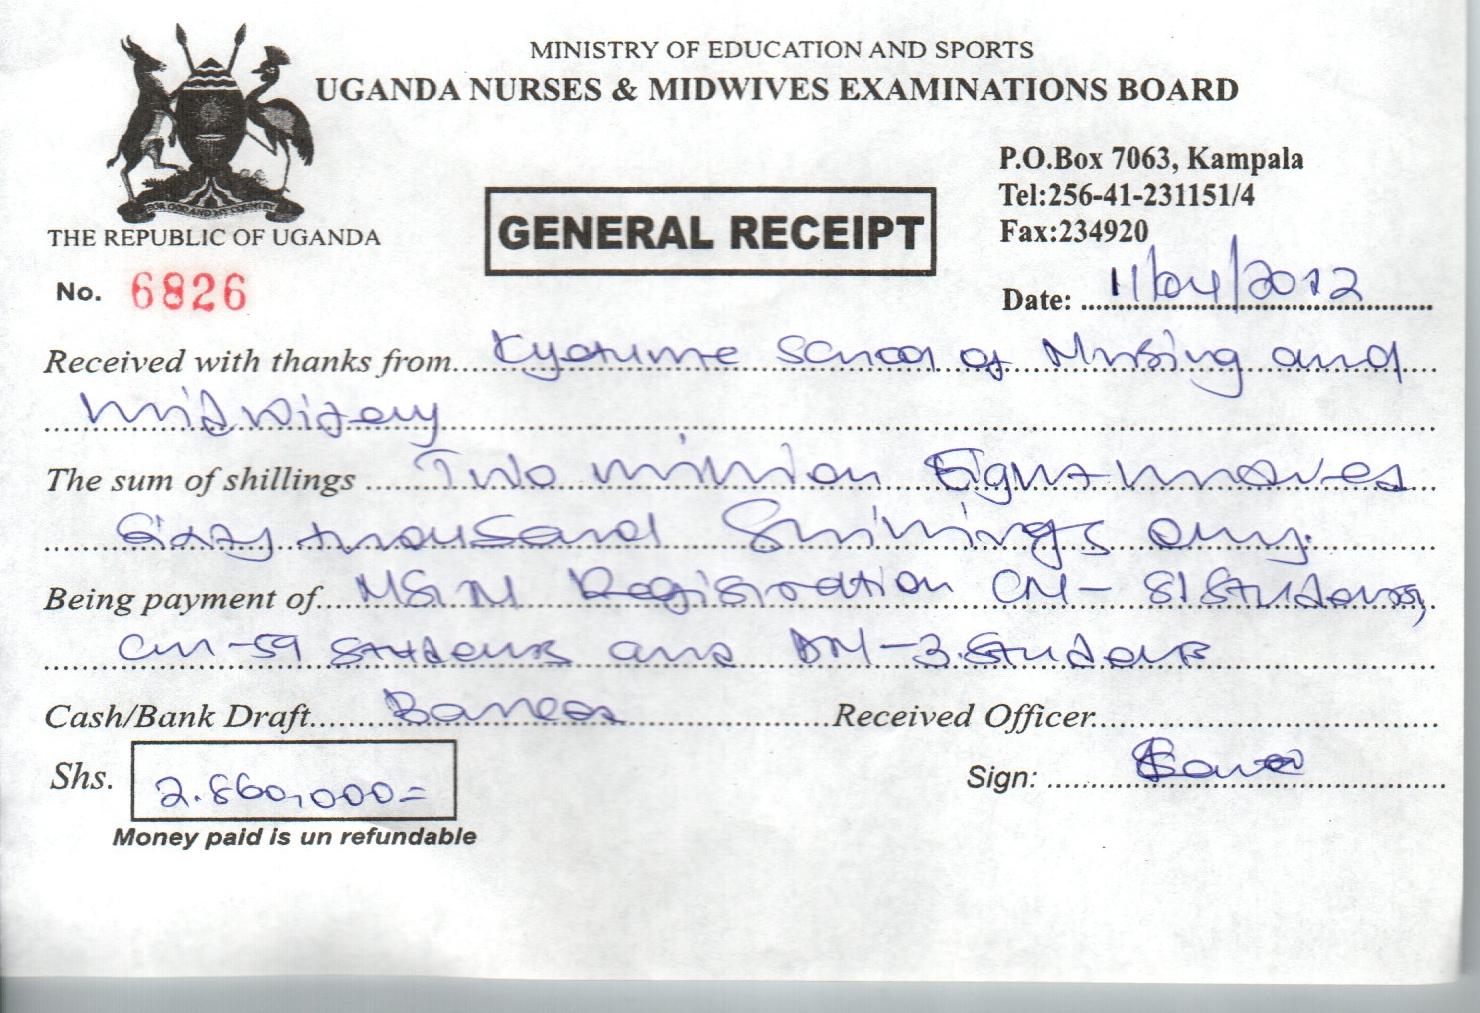 MINISTRY OF EDUCATION AND SPORTS
UGANDA NURSES & MIDWIVES EXAMINATIONS BOARD
FOR GOD AND MY COUNTRY
THE REPUBLIC OF UGANDA
GENERAL RECEIPT
P.O.Box 7063, Kampala
Tel:256-41-231151/4
Fax:234920
No. 6826
Date: 11/04/2012
Received with thanks from Kyetume School of Nursing and
Midwifery
The sum of shillings Two million Eight hundred
Sixty thousand Shillings only.
Being payment of Registration CN- 81 Students,
CM-59 Students and DM-3 Students
Cash/Bank Draft Received Officer
Shs. 2.860,000=
Sign:
Money paid is un refundable